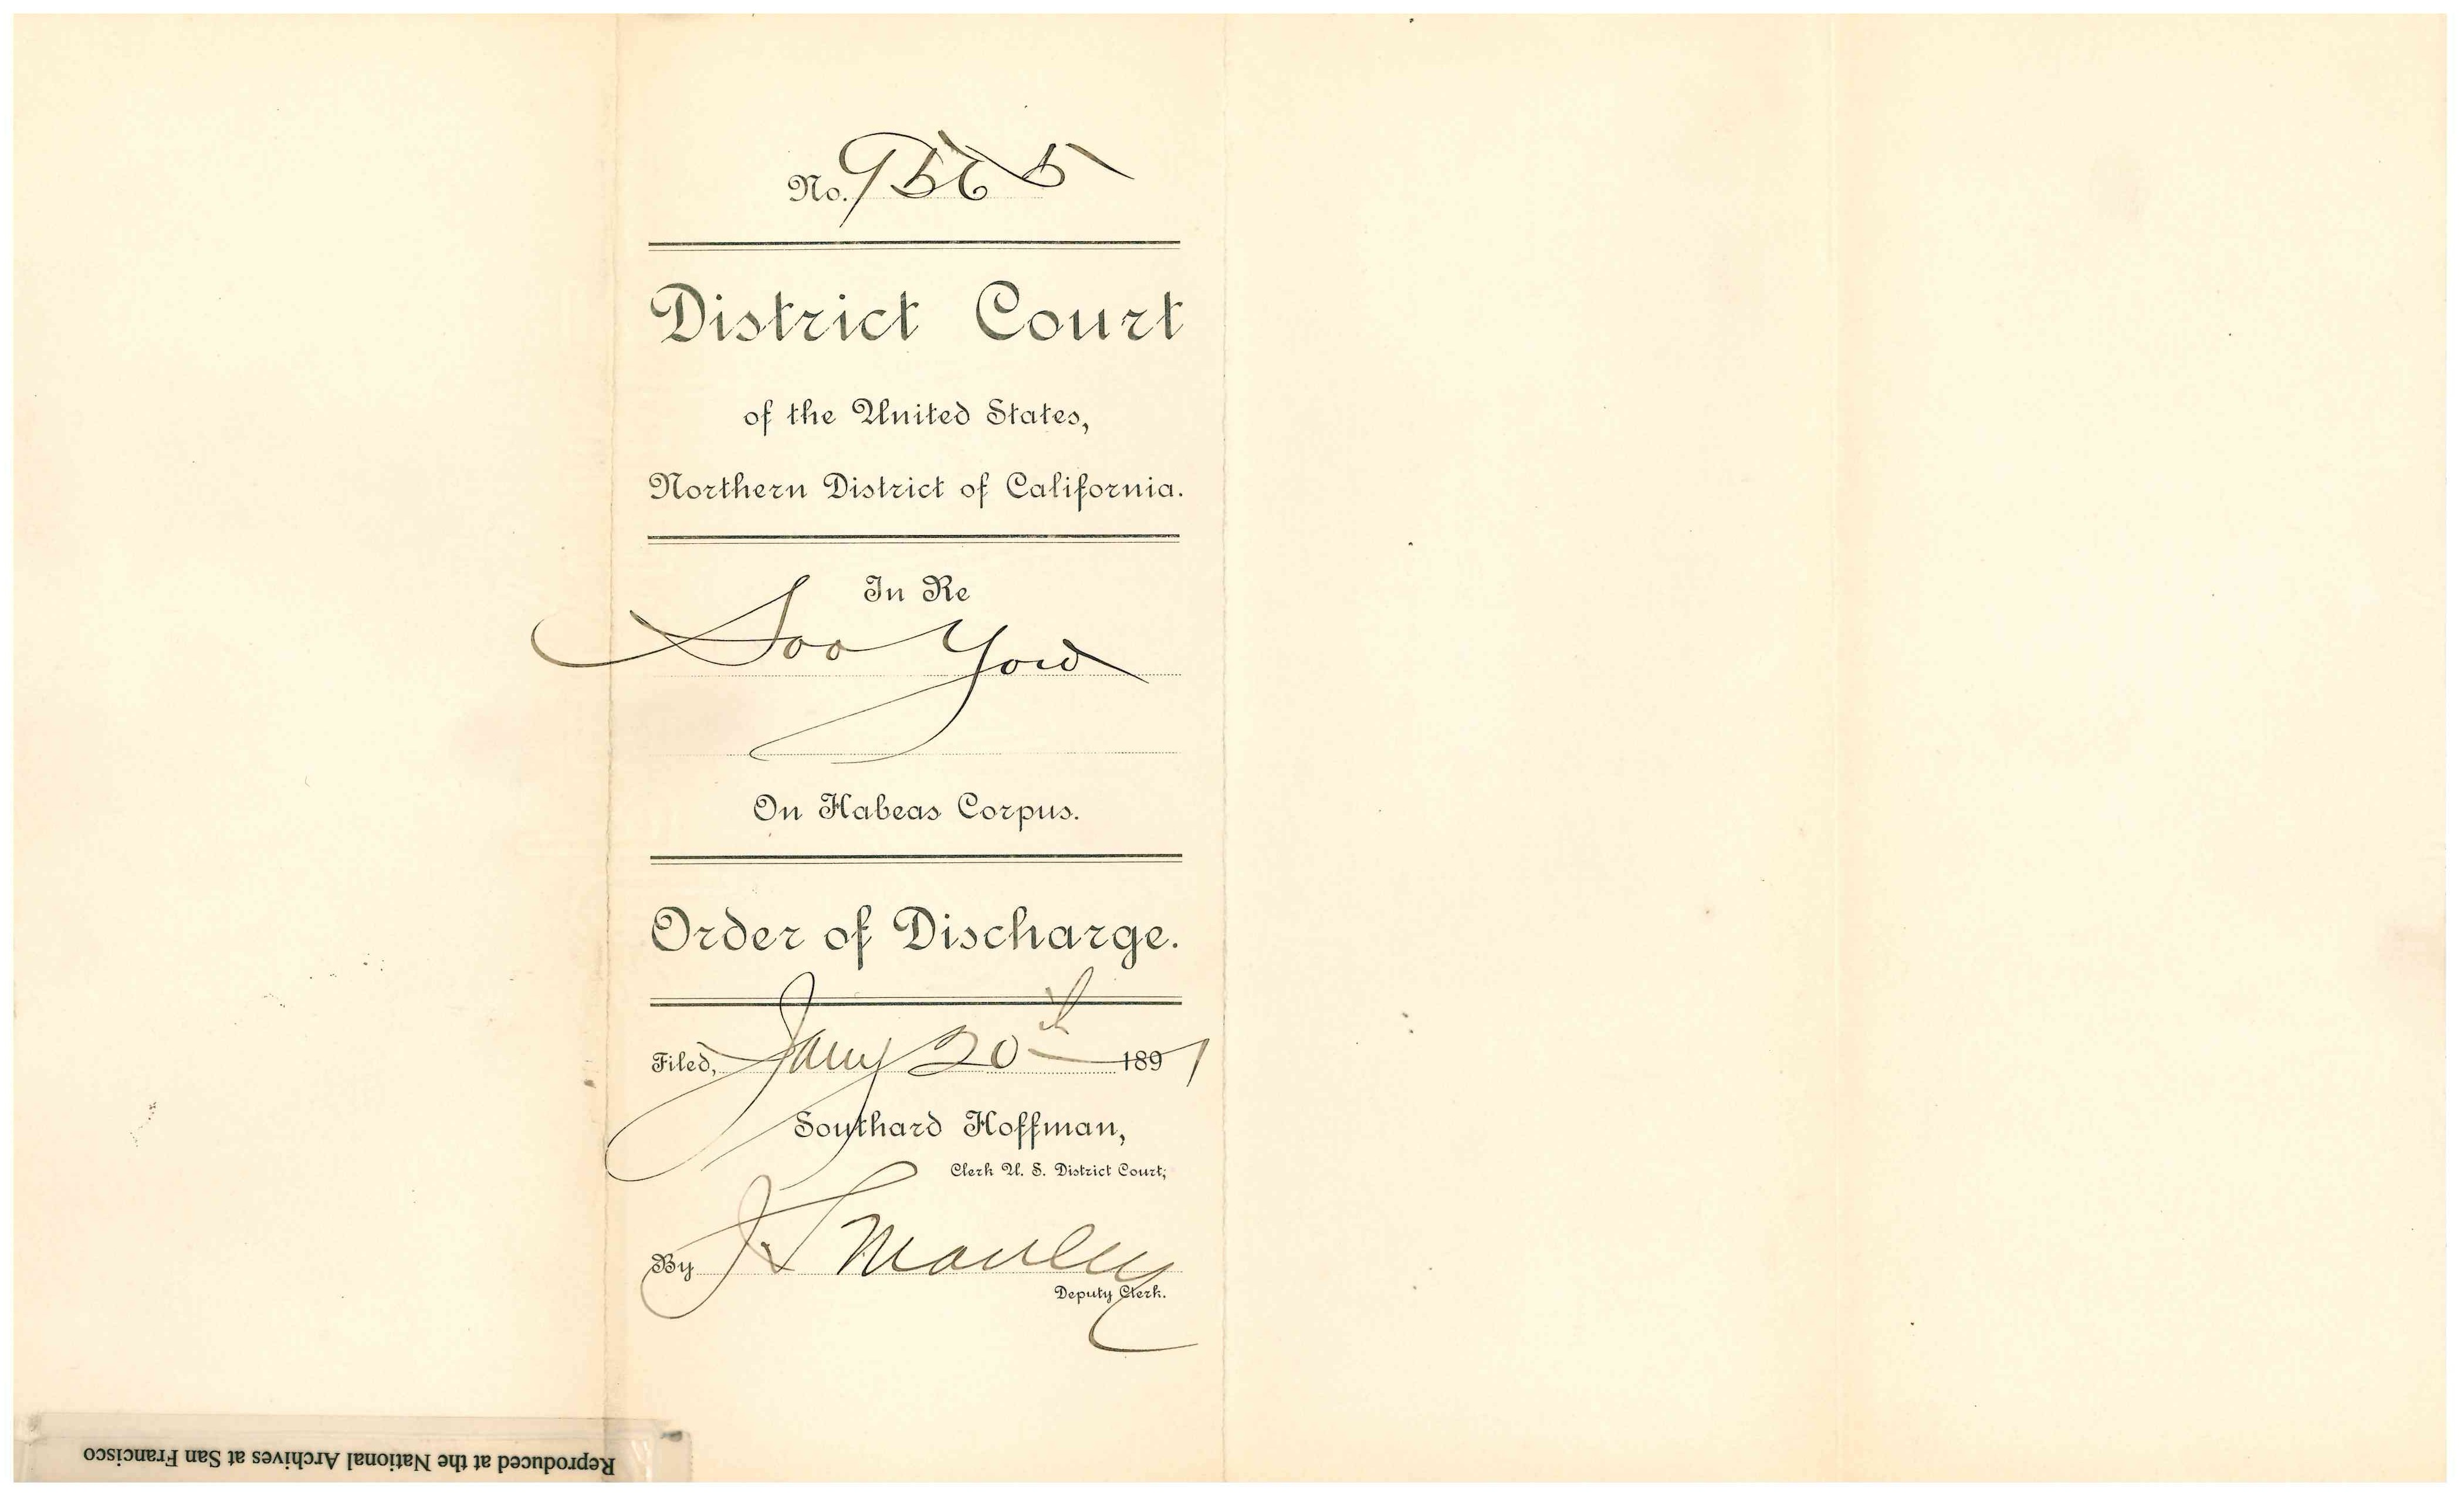 No. 9565
District Court
of the United States,
Northern District of California.
In Re
Soo Yow
On Habeas Corpus.
Order of Discharge.
Filed, Jany 20th 1891
Southard Hoffman,
Clerk U. S. District Court;
By J. S. Manley
Deputy Clerk.
Reproduced at the National Archives at San Francisco